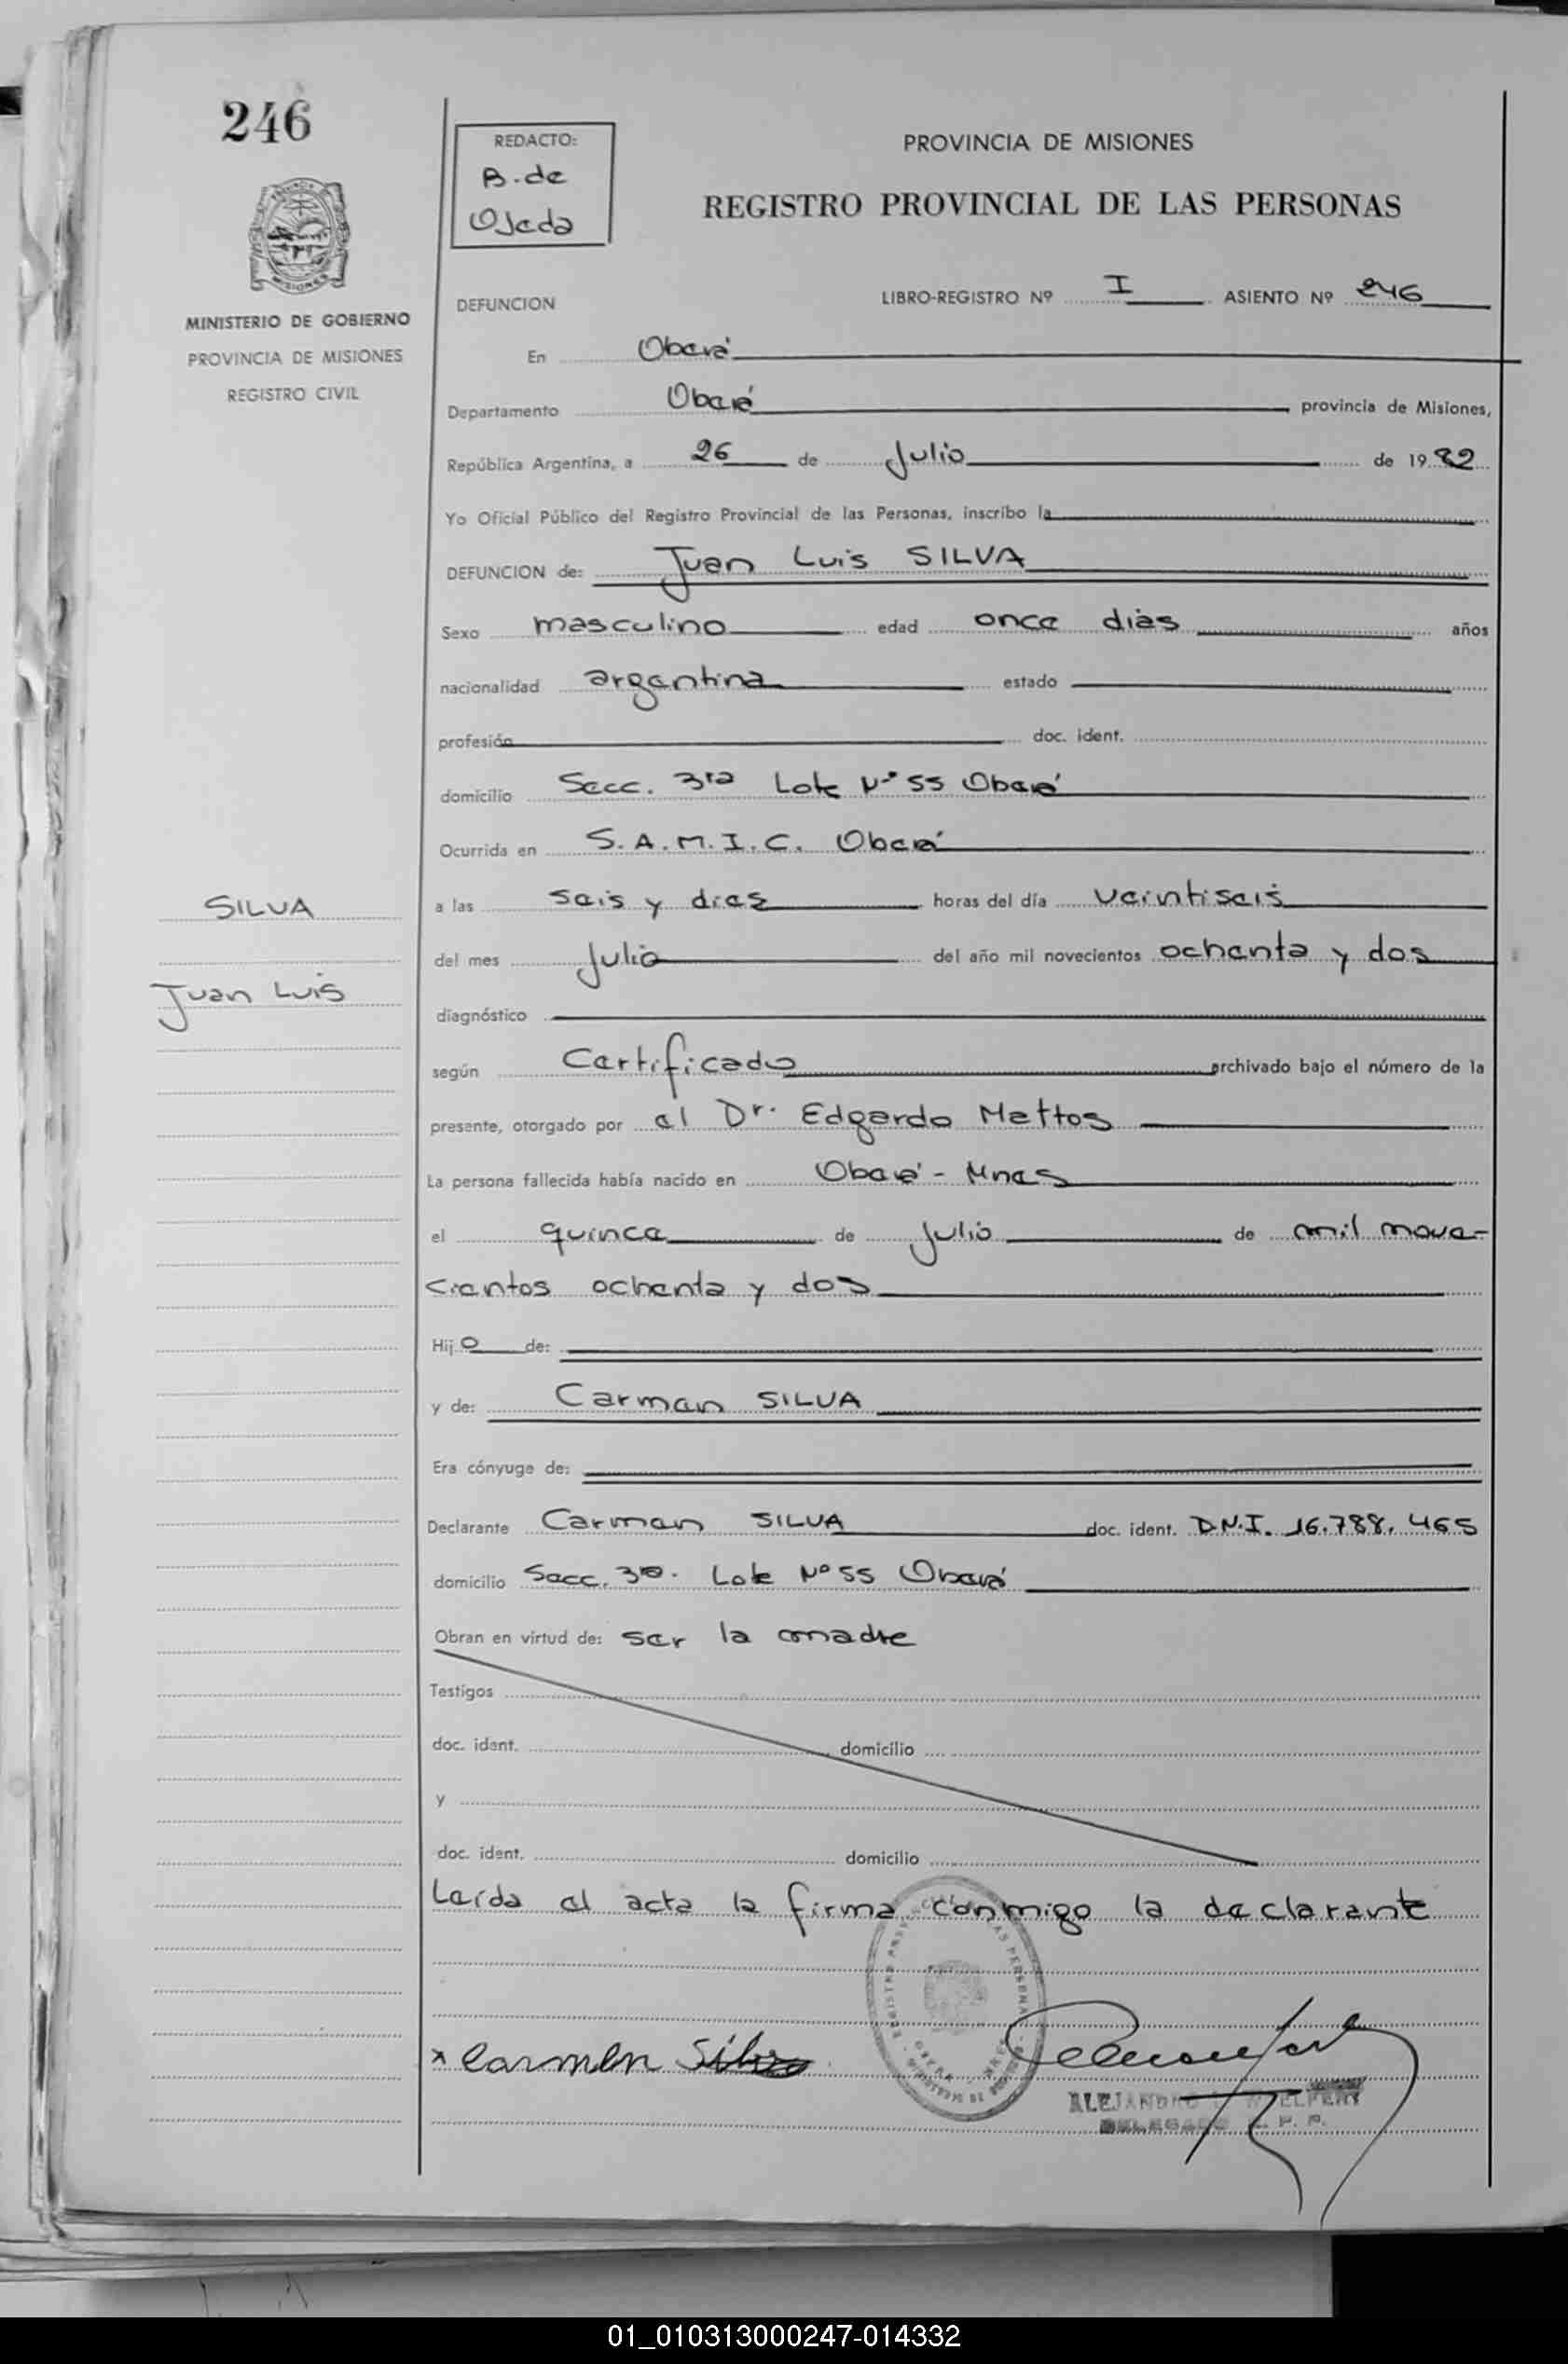 246
MINISTERIO DE GOBIERNO
PROVINCIA DE MISIONES
REGISTRO CIVIL
REDACTO:
B. de
Ojeda
PROVINCIA DE MISIONES
REGISTRO PROVINCIAL DE LAS PERSONAS
DEFUNCION
LIBRO-REGISTRO Nº I ASIENTO Nº 246
En Oberá
Departamento Oberá provincia de Misiones,
República Argentina, a 26 de Julio de 1982
Yo Oficial Público del Registro Provincial de las Personas, inscribo la
DEFUNCION de: Juan Luis SILVA
Sexo masculino edad once dias años
nacionalidad argentina estado
profesión doc. ident.
domicilio Secc. 3ra Lote Nº 55 Oberá
Ocurrida en S.A.M.I.C. Oberá
SILVA
a las seis y diez horas del día veintiseis
del mes Julio del año mil novecientos ochenta y dos
Juan Luis
diagnóstico
según Certificado archivado bajo el número de la
presente, otorgado por el Dr. Edgardo Mattos
La persona fallecida había nacido en Oberá - Mnes
el quince de Julio de mil nove-
cientos ochenta y dos
Hijo de:
y de: Carmen SILVA
Era cónyuge de:
Declarante Carmen SILVA doc. ident. D.N.I. 16.788.465
domicilio Secc. 3ra. Lote Nº 55 Oberá
Obran en virtud de: ser la madre
Testigos
doc. ident. domicilio
y
doc. ident. domicilio
Leída el acta la firma conmigo la declarante
x Carmen Silva
ALEJANDRO
DELEGADO R. P. P.
01_010313000247-014332